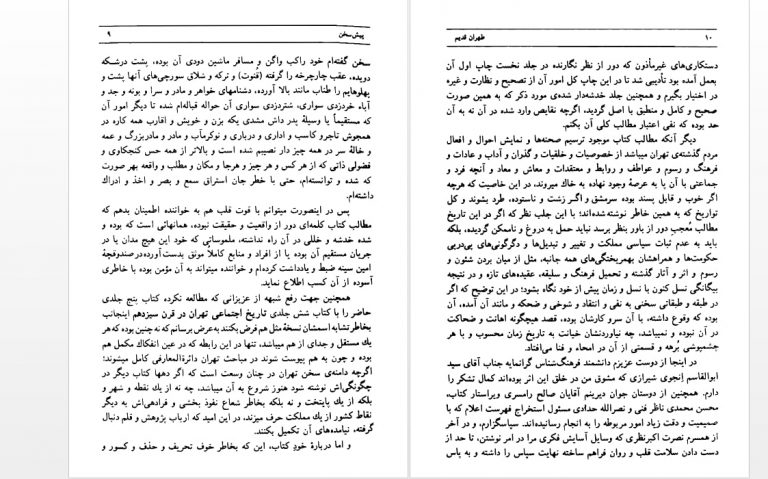 پیش‌سخن ۹
سخن گفته‌ام خود راکب واگن و مسافر ماشین دودی آن بوده، پشت درشکه
دویده، عقب چارچرخه را گرفته (قُنوت) و ترکه و شلاق سورچی‌های آنها پشت و
پهلوهایم را طناب مانند بالا آورده، دشنامهای خواهر و مادر و سرا و بونه و جد و
آباء خردزدی سواری، شتردزدی سواری آن حواله قباله‌ام شده تا دیگر امور آن
که مستقیماً یا وسیلهٔ پدر داش مشدی یکه بزن و خویش و اقارب همه کاره در
همجوش تاجرو کاسب و اداری و درباری و نوکرمآب و مادر و مادربزرگ و عمه
و خالهٔ سر در همه چیز دار نصیبم شده است و بالاتر از همه حس کنجکاوی و
فضولی ذاتی که از هر کس و هر چیز و هرجا و مکان و مطلب و واقعه بهر صورت
که شده و توانسته‌ام، حتی با خطر جان استراق سمع و بصر و اخذ و ادراك
داشته‌ام.
پس در اینصورت میتوانم با قوت قلب هم به خواننده اطمینان بدهم که
مطالب کتاب کلمه‌ای دور از واقعیت و حقیقت نبوده، همانهائی است که بوده و
شده خدشه و خللی در آن راه نداشته، ملموساتی که خود این هیچ مدان یا در
جریان مستقیم آن بوده یا از افراد و منابع کاملاً موثق بدست‌آورده درصندوقچهٔ
امین سینه ضبط و یادداشت کرده‌ام و خواننده میتواند به آن مؤمن بوده با خاطری
آسوده از آن کسب اطلاع نماید.
همچنین جهت رفع شبهه از عزیزانی که مطالعه نکرده کتاب پنج جلدی
حاضر را با کتاب شش جلدی تاریخ اجتماعی تهران در قرن سیزدهم اینجانب
بخاطر تشابه اسمشان نسخهٔ مثل هم فرض بکنند به‌عرض برسانم که نه چنین بوده که هر
یك مستقل و جدای از هم میباشد، تنها در این رابطه که در عین انفکاك مکمل هم
بوده و چون به هم پیوست شوند در مباحث تهران دائرةالمعارفی کامل میشوند؛
اگرچه دامنه‌ی سخن تهران در چنان وسعت است که اگر دهها کتاب دیگر در
چگونگی‌اش نوشته شود هنوز شروع به آن میباشد، چه نه از یك نقطه و شهر و
بلکه از یك پایتخت و نه بلکه بخاطر شعاع نفوذ بخشی و فرادهی‌اش به دیگر
نقاط کشور از یك مملکت حرف میزند، در این امید که ارباب پژوهش و قلم دنبال
گرفته، نیامده‌های آن تکمیل بکنند.
و اما دربارهٔ خود کتاب، این که بخاطر خوف تحریف و حذف و کسور و
۱۰ طهران قدیم
دستکاری‌های غیرمأذون که دور از نظر نگارنده در جلد نخست چاپ اول آن
بعمل آمده بود تأدیبی شد تا در این چاپ کل امور آن از تصحیح و نظارت و غیره
در اختیار بگیرم و همچنین جلد خدشه‌دار شده‌ی مورد ذکر که به همین صورت
صحیح و کامل و منطبق با اصل گردید، اگرچه نقایص وارد شده در آن نه به آن
حد بوده که نفی اعتبار مطالب کلی آن بکنم.
دیگر آنکه مطالب کتاب موجود ترسیم صحنه‌ها و نمایش احوال و افعال
مردم گذشته‌ی تهران میباشد از خصوصیات و خلقیات و گذران و آداب و عادات و
فرهنگ و رسوم و عواطف و روابط و معتقدات و معاش و معاد و آنچه فرد و
جماعتی با آن پا به عرصهٔ وجود نهاده به خاك میروند، در این خاصیت که هرچه
اگر خوب و قابل پسند بوده سرمشق و اگر زشت و ناستوده، طرد بشوند و کل
تواریخ که به همین خاطر نوشته شده‌اند؛ با این جلب نظر که اگر در این تاریخ
مطالب مُعجبِ دور از باور بنظر برسد نباید حمل به دروغ و ناممکن گردیده، بلکه
باید به عدم ثبات سیاسی مملکت و تغییر و تبدیل‌ها و دگرگونی‌های پی‌درپی
حکومت‌ها و همراهشان بهم‌ریختگی‌های همه جانبه، مثل از میان بردن شئون و
رسوم و اثر و آثار گذشته و تحمیل فرهنگ و سلیقه، عقیده‌های تازه و در نتیجه
بیگانگی نسل کنون با نسل و زمان پیش از خود نگاه بشود؛ در این توضیح که اگر
در طبقه و طبقاتی سخنی به نفی و انتقاد و شوخی و ضحکه و مانند آن آمده، آن
بوده که وقوع داشته، با آن سرو کارشان بوده، قصد هیچگونه اهانت و ضحاکت
در آن نبوده و نمیباشد، چه نیاوردنشان خیانت به تاریخ زمان محسوب و با هر
چشمپوشی بُرهه و قسمتی از آن در امحاء و فنا می‌افتاد.
در اینجا از دوست عزیزم دانشمند فرهنگ‌شناس گرانمایه جناب آقای سید
ابوالقاسم اِنجوی شیرازی که مشوق من در خلق این اثر بوده‌اند کمال تشکر را
دارم. همچنین از دوستان جوان دیرینم آقایان صالح رامسری ویراستار کتاب،
محسن محمدی ناظر فنی و نصرالله حدادی مسئول استخراج فهرست اعلام که با
صمیمیت و دقت زیاد امور مربوطه را به انجام رسانیده‌اند. سپاسگزارم، و در آخر
از همسرم نصرت اکبرنظری که وسایل آسایش فکری مرا در امر نوشتن، تا حد از
دست دادن سلامت قلب و روان فراهم ساخته نهایت سپاس را داشته و به پاس